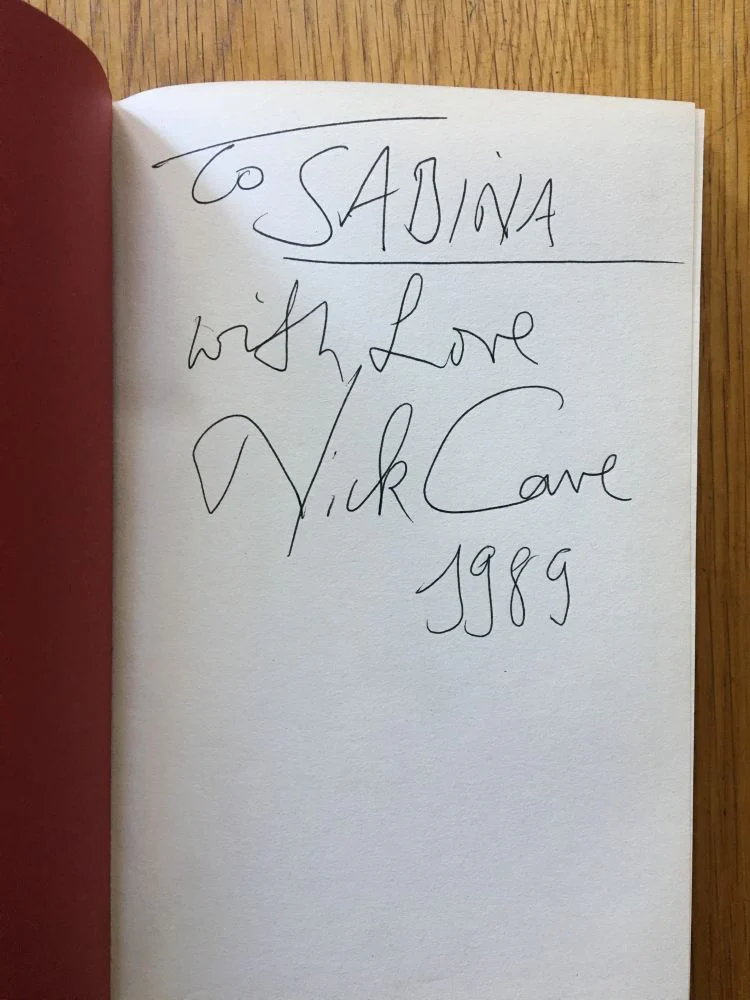 To SABINA
with Love
Nick Cave
1989